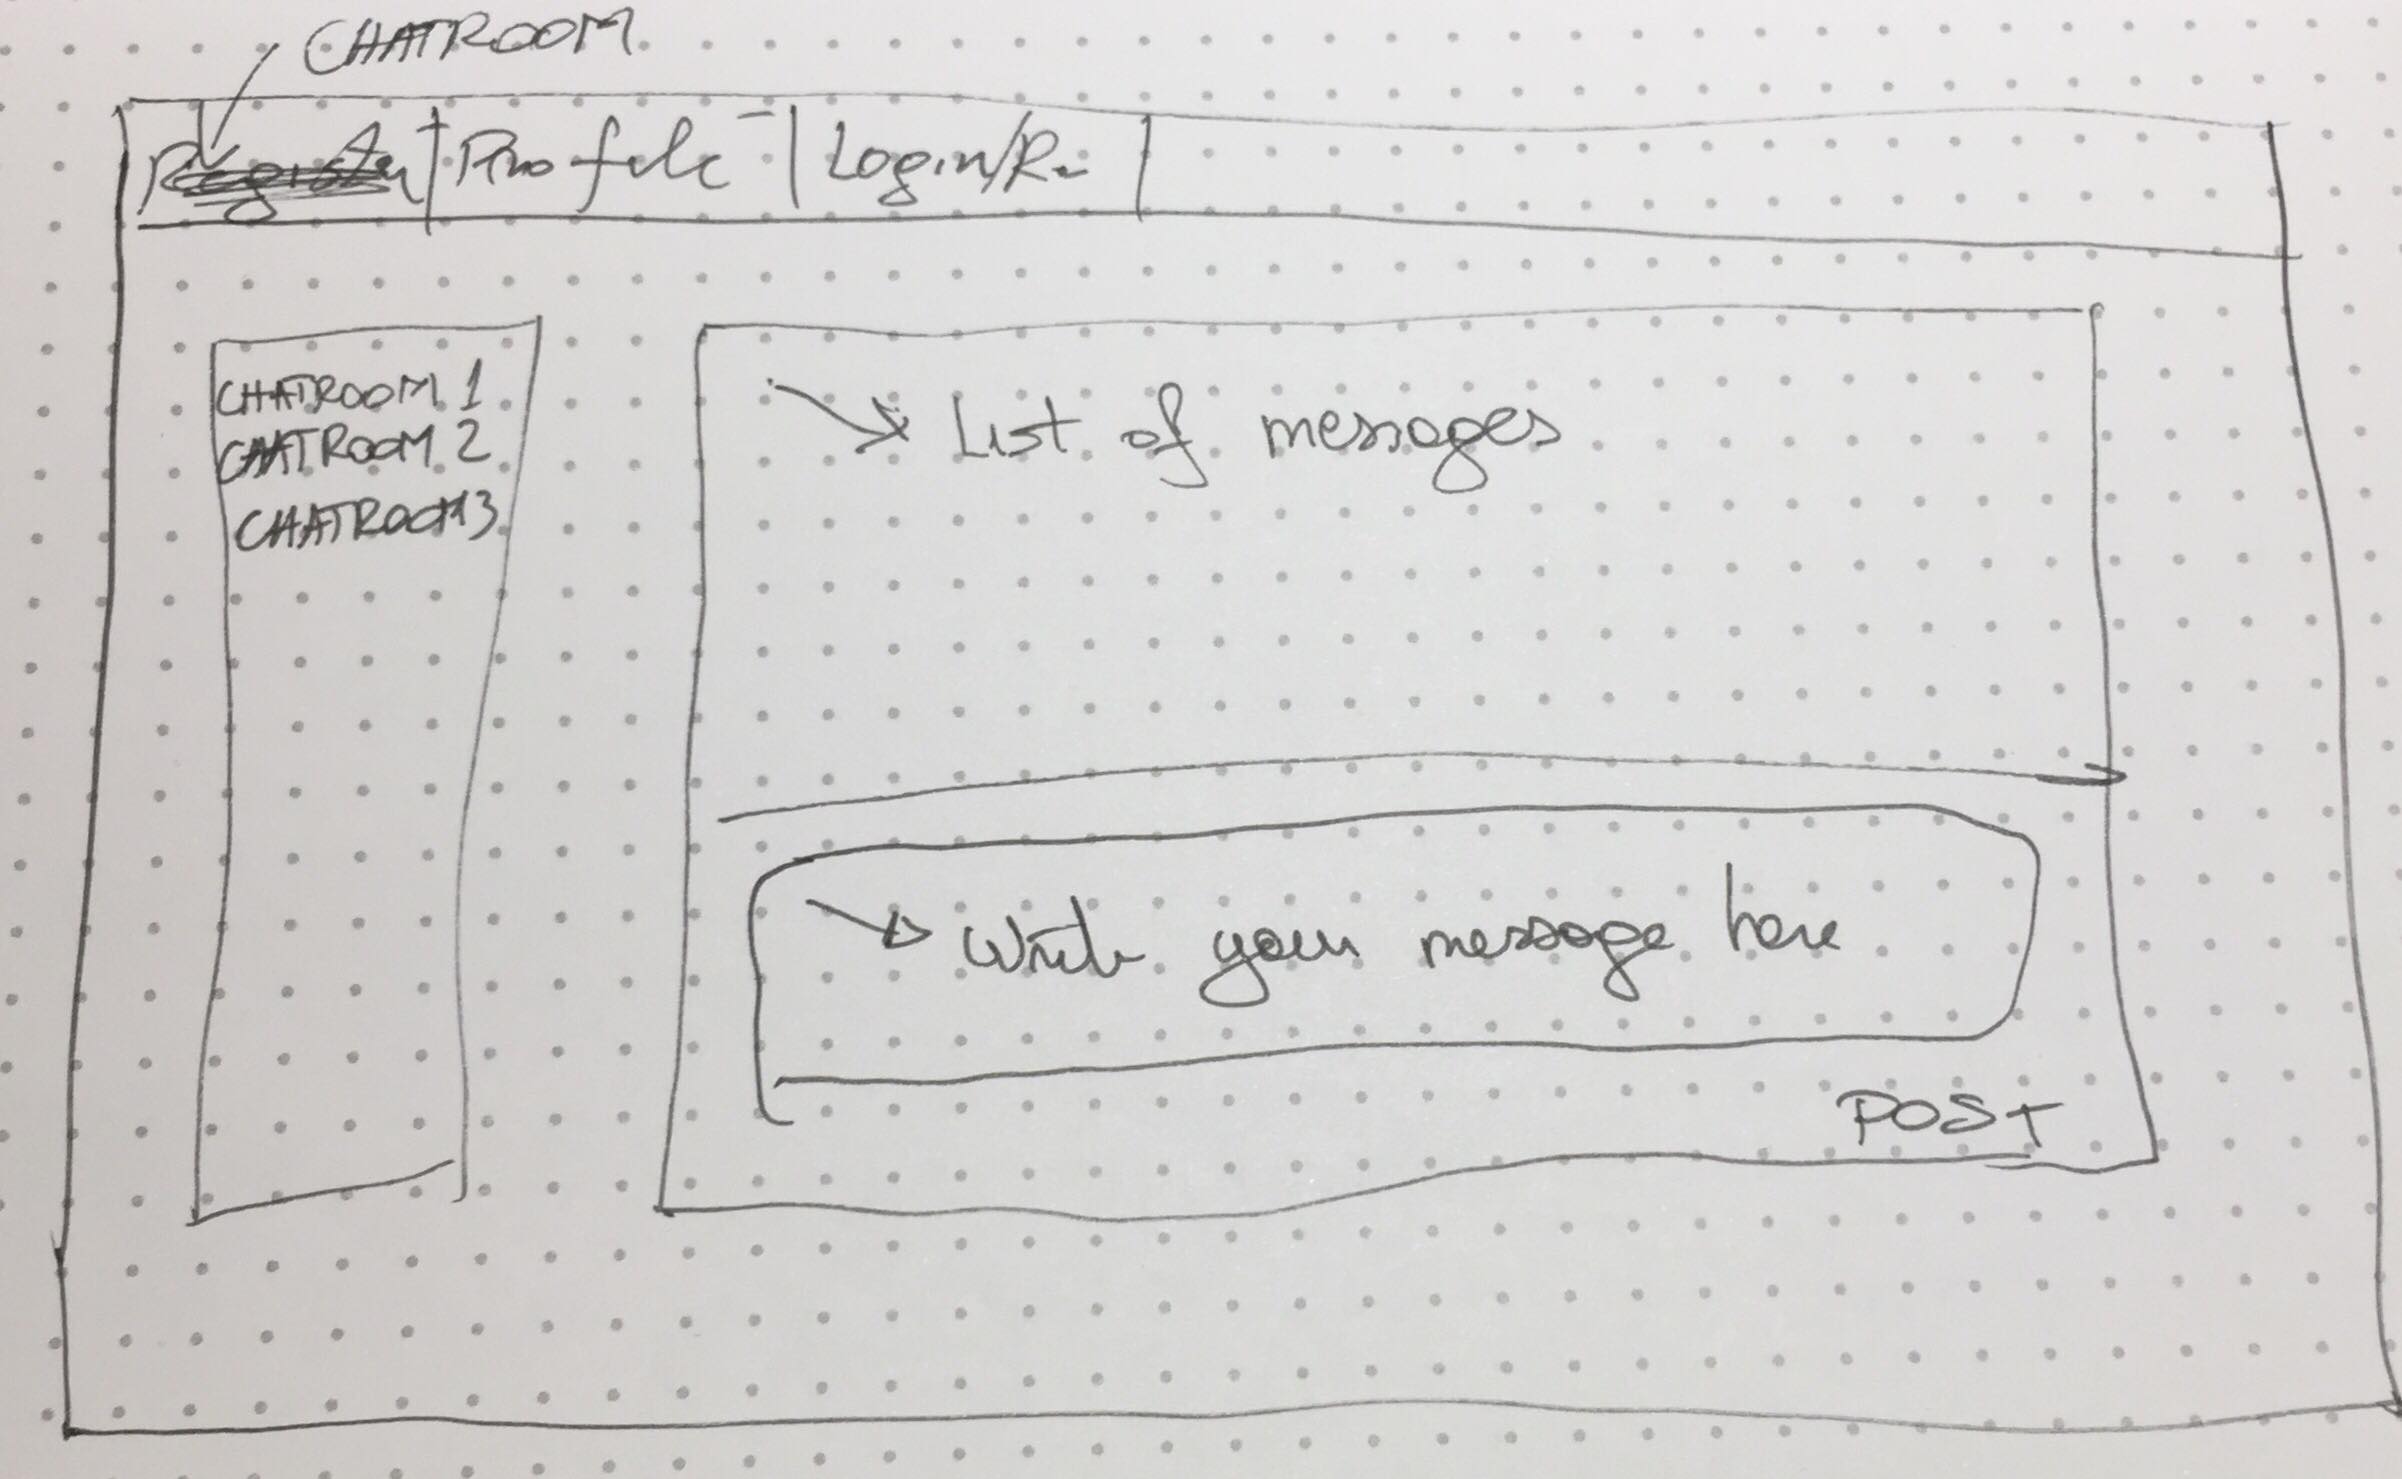 CHATROOM
Register Profile Login/Re
CHATROOM 1
CHATROOM 2
CHATROOM 3
List of messages
Write your message here
POST